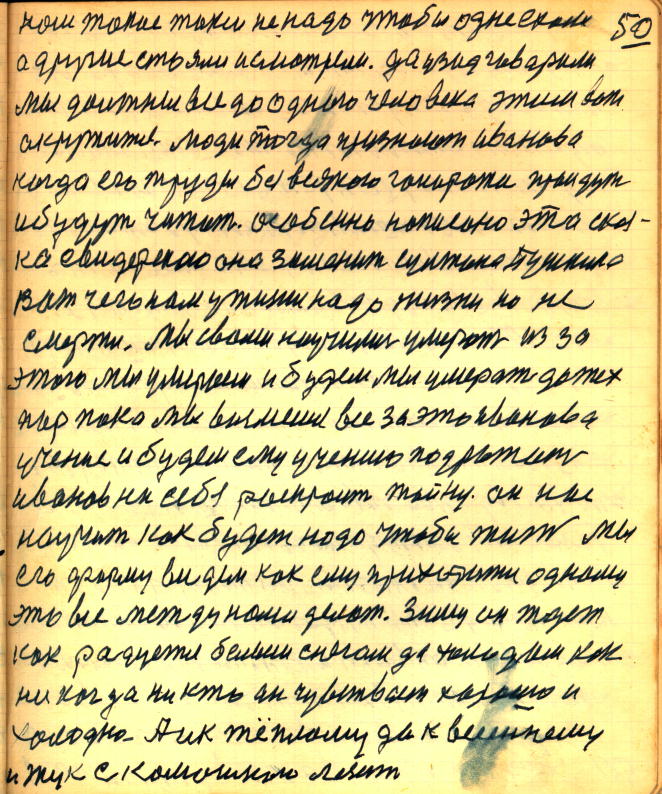 нам такое токи не надо чтобы одне
50
а другие стояли и смотрели. да
мы должны все до одного человека этим вот
окружите. люди тогда признают Иванова
когда его труды без всякого прийдут
и будут читат. особенно написано эта
она заменит султона Пушкина
Вот чего нам у жизни надо жизни но не
смерти. мы свами научилис умерат из за
этого мы умираем и будем мы умерат до тех
пор пока мы возмемся все за это Иванова
учение и будем ему учению подражат
Иванов на себя раскроит тайну. он нас
научит как будет надо чтобы жит мы
его форму видем как ему одному
это все между нами делат. Зиму он ждет
как радуется белым снегам да холодам как
никогда никто он чувствает хорошо и
холодно. А и к тёплому да к весеннему
и жук с камошком лезит